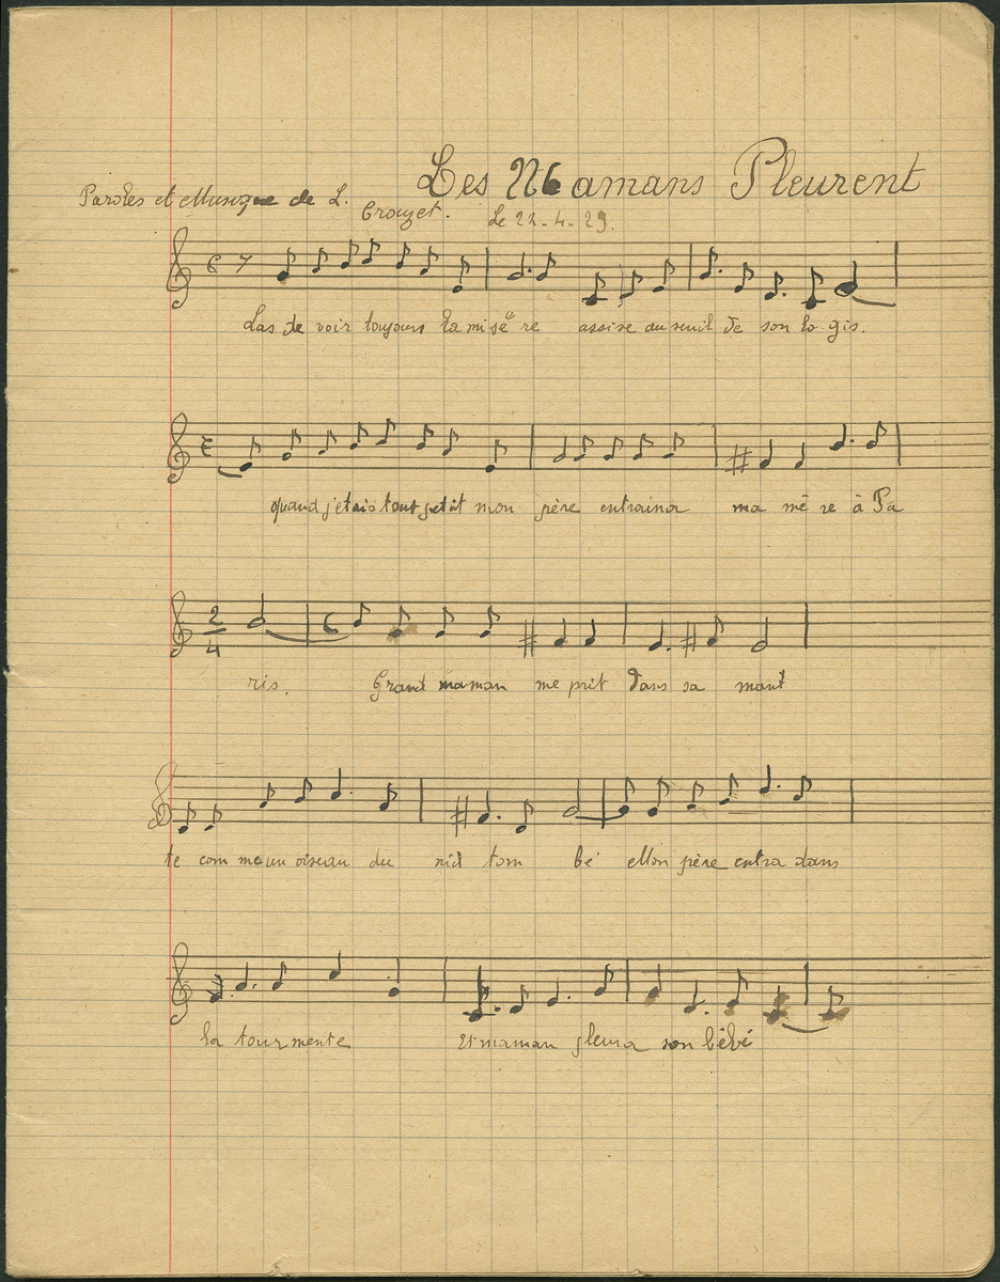 Les Mamans Pleurent
Paroles et Musique de L.
Crouzet. Le 22-4-29.
Las de voir toujours la misè re assise au seuil de son lo gis.
quand j'etais tout petit mon père entraina ma mè re à Pa
2
4
ris. Grand maman me prit dans sa mant
te com me un oiseau du nid tom bé Mon père entra dans
la tour mente Et maman pleura son bébé